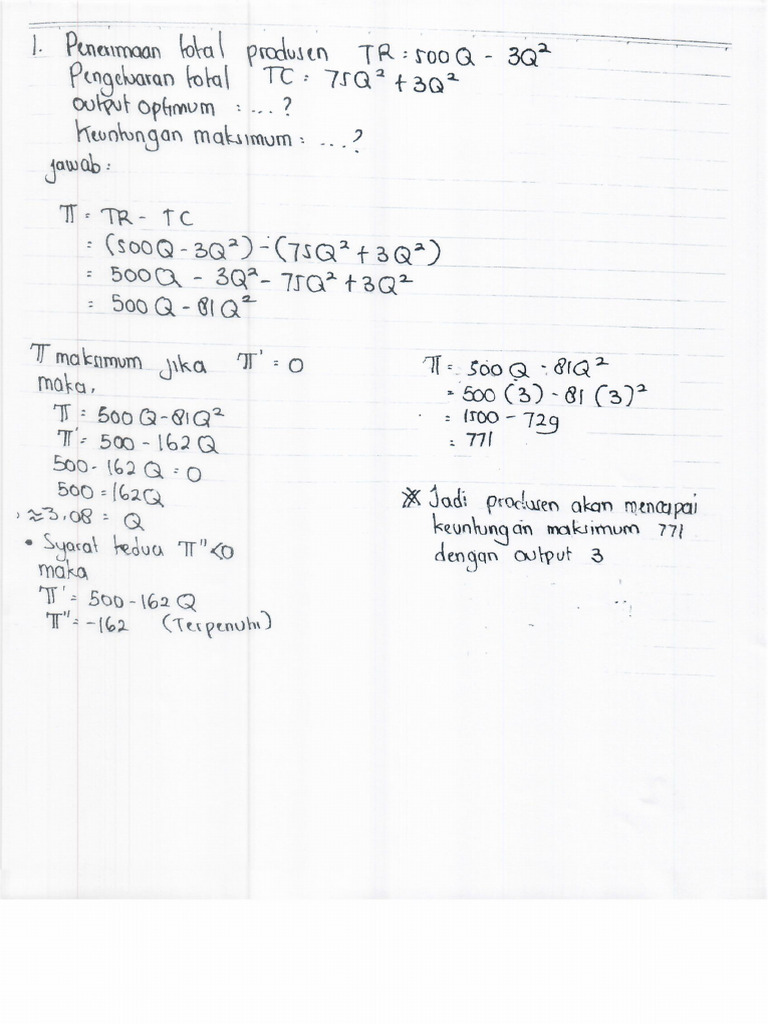 1. Penerimaan total produsen TR = 500Q - 3Q²
Pengeluaran total TC = 75Q² + 3Q²
output optimum : ...?
Keuntungan maksimum : ...?
jawab :
π = TR - TC
= (500Q - 3Q²) - (75Q² + 3Q²)
= 500Q - 3Q² - 75Q² + 3Q²
= 500Q - 81Q²
π maksimum jika π' = 0
maka,
π = 500Q - 81Q²
π' = 500 - 162Q
500 - 162Q = 0
500 = 162Q
≈ 3,08 = Q
• Syarat kedua π'' < 0
maka
π' = 500 - 162Q
π'' = -162 (Terpenuhi)
π = 500Q - 81Q²
= 500 (3) - 81 (3)²
= 1500 - 729
= 771
* Jadi produsen akan mencapai
keuntungan maksimum 771
dengan output 3